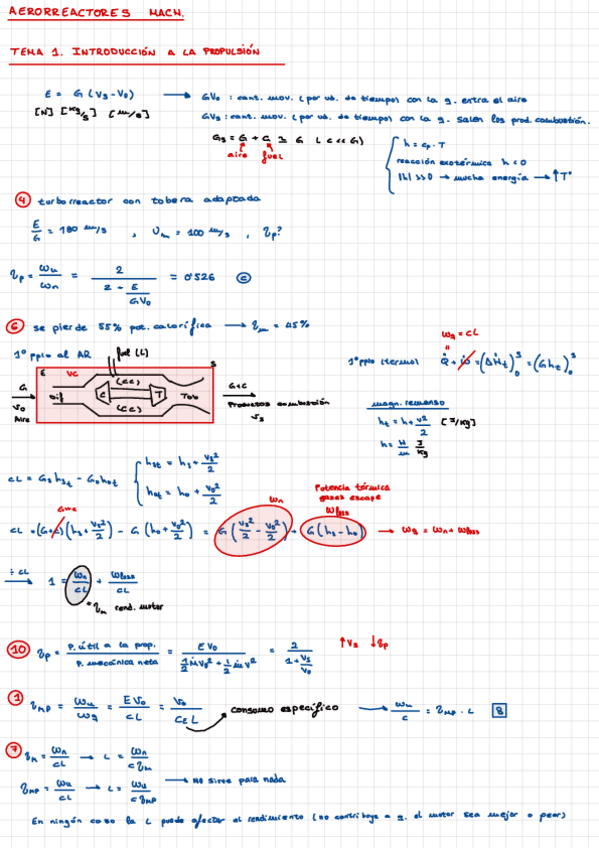 AERORREACTORES MACH.
TEMA 1. INTRODUCCIÓN A LA PROPULSIÓN
E = G (Vs - V0) → GV0 : cant. mov. (por ud. de tiempo) con la q. entra el aire
[N] [kg/s] [m/s] GVs : cant. mov. (por ud. de tiempo) con la q. salen los prod. combustión.
Gs = G + c ≃ G (c << G)
aire fuel
h = cp · T
reacción exotérmica h < 0
|h| >> 0 → mucha energía → ↑Tª
4 turborreactor con tobera adaptada
E/G = 180 m/s , V∞ = 100 m/s , ηp?
ηp = Wu/Wn = 2 / (2 - E/GV0) = 0'526 C
6 se pierde 55% pot. calorífica → ηm = 45%
Wq = cL
1º ppio al AR fuel (L)
1º ppio (termo) Q̇ + ẇ = (ΔḢt)₀ˢ = (Ght)₀ˢ
E VC S
G V0 Aire
Dif (CC) C T (CC) Tob
G+c
Productos combustión
Vs
magn. remanso
ht = h + v²/2 [J/kg]
h = H/m J/kg
cL = Gs hst - G0 h0t
hst = hs + Vs²/2
h0t = h0 + V0²/2
Potencia térmica
gases escape
G>>c Wn Wloss
cL = (G+c)(hs + Vs²/2) - G (h0 + V0²/2) = G (Vs²/2 - V0²/2) + G (hs - h0) → Wq = Wn + Wloss
÷ cL → 1 = Wn/cL + Wloss/cL
= ηm rend. motor
10 ηp = P. útil a la prop. / P. mecánica neta = EV0 / (½ṀV0² + ½ṁv²) = 2 / (1 + Vs/V0) ↑Vs ↓ηp
1 ηMP = Wu/Wq = EV0/cL = V0/CEL consumo específico → Wu/c = ηMP · L B
7 ηM = Wn/cL → L = Wn/cηM
ηMP = Wu/cL → L = Wu/cηMP → No sirve para nada
En ningún caso la L puede afectar el rendimiento (no contribuye a q. el motor sea mejor o peor)